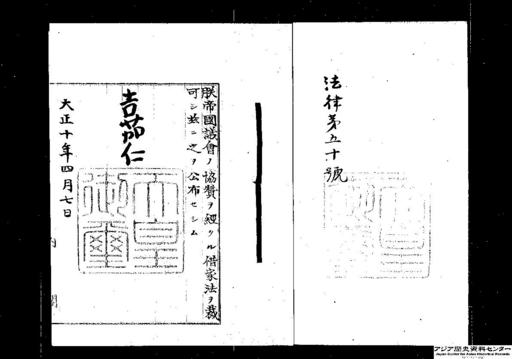 法律第五十號
朕帝國議會ノ協贊ヲ經タル借家法ヲ裁
可シ茲ニ之ヲ公布セシム
嘉仁
天皇御璽
大正十年四月七日
内閣
アジア歴史資料センター
Japan Center for Asian Historical Records